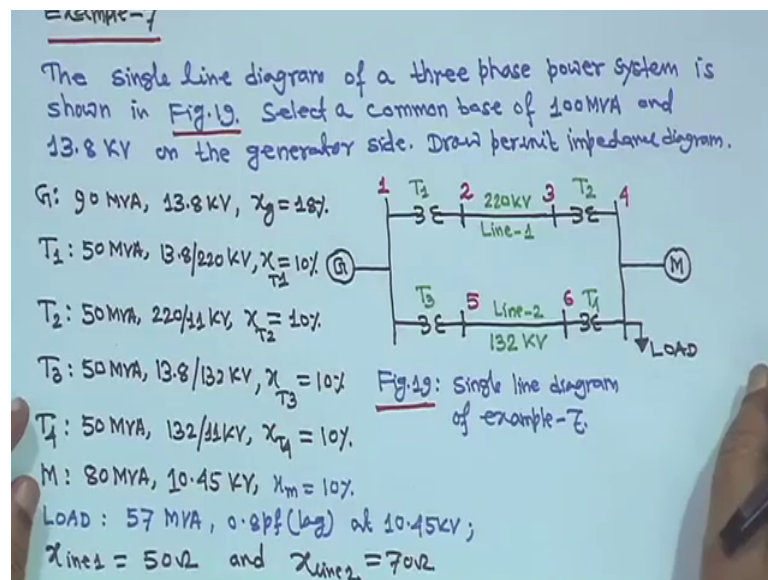 Example-7
The single line diagram of a three phase power system is
shown in Fig.19. Select a common base of 100MVA and
13.8 KV on the generator side. Draw perunit impedance diagram.
G: 90 MVA, 13.8KV, xg = 18%.
T1: 50 MVA, 13.8/220 KV, xT1 = 10%
T2: 50MVA, 220/11 KV, xT2 = 10%.
T3: 50MVA, 13.8/132 KV, xT3 = 10%
T4: 50 MVA, 132/11KV, xT4 = 10%.
M: 80 MVA, 10.45 KV, xm = 10%.
LOAD: 57 MVA, 0.8pf (lag) at 10.45KV;
xline1 = 50Ω and xline2 = 70Ω
1 T1 2 220KV 3 T2 4
Line-1
G
M
T3 5 Line-2 6 T4
132 KV
LOAD
Fig.19: Single line diagram
of example-7.